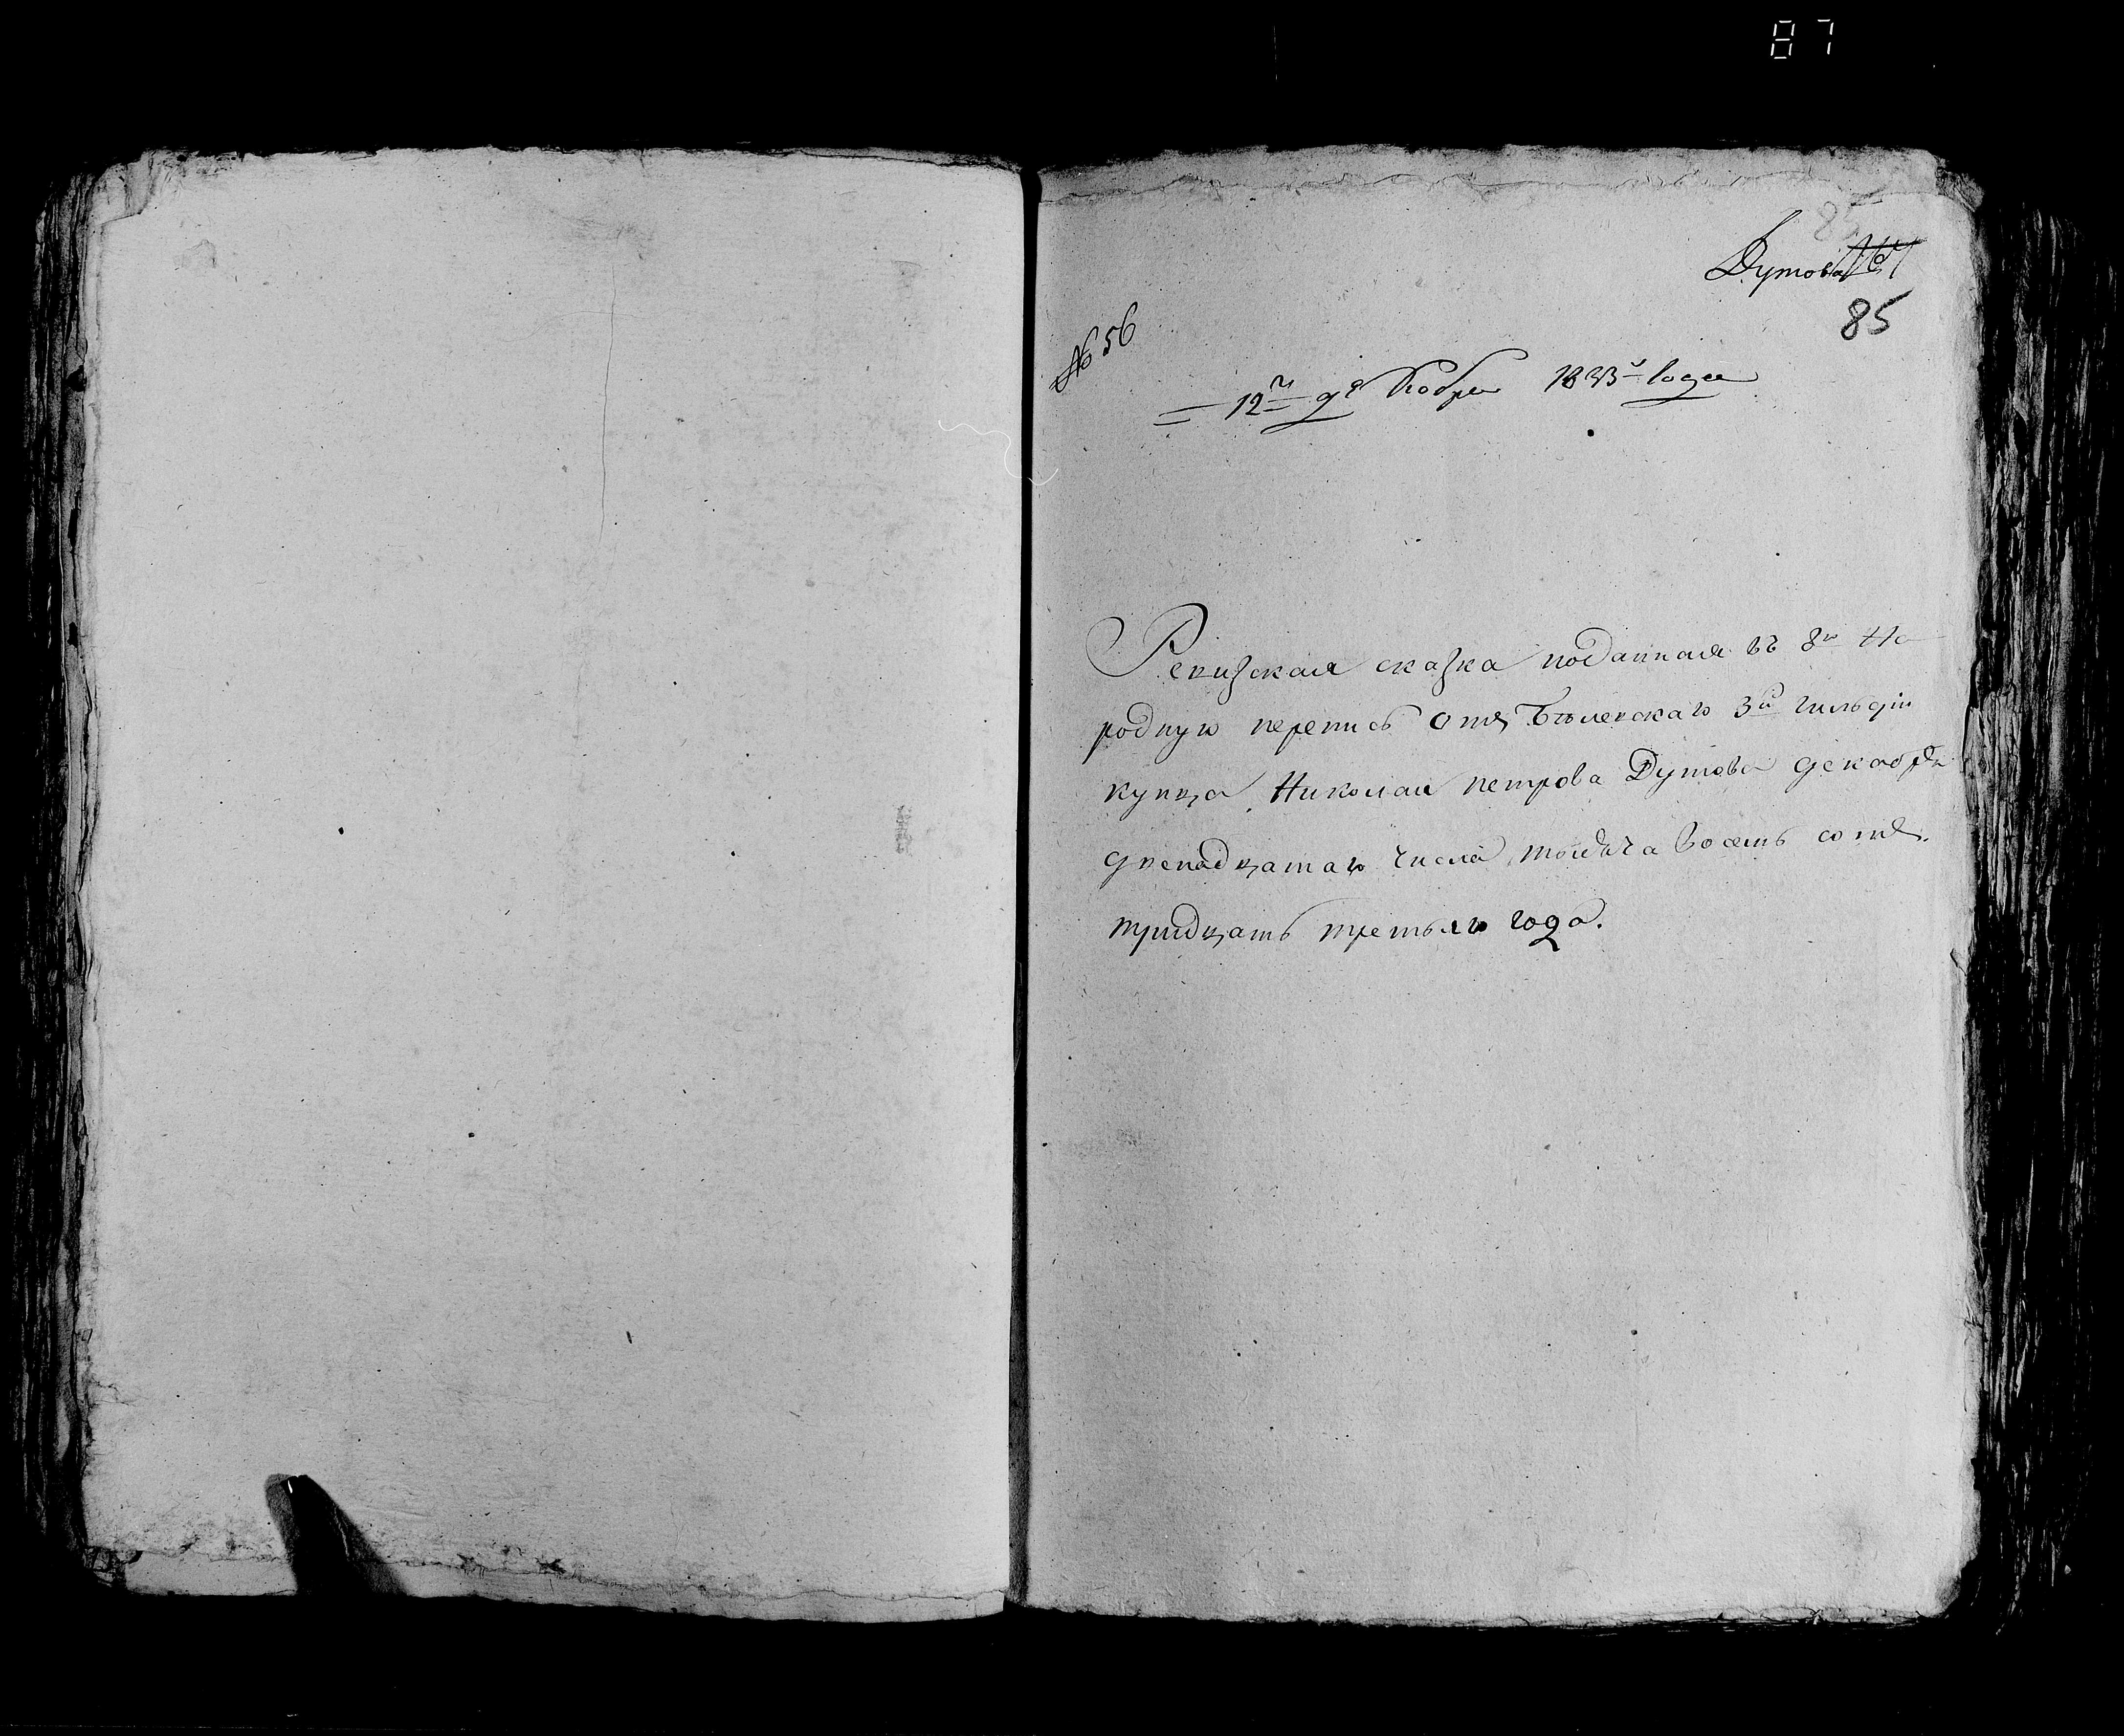 87
85
Дутова
85
№ 56
12го декабря 1833го года
Ревизская сказка поданная въ 8ю На
родную перепись отъ Бѣлевскаго 3й гильдіи
купца Николая петрова Дутова декабря
двенадцатаго числа тысяча восемь сотъ
тридцать третьяго года.